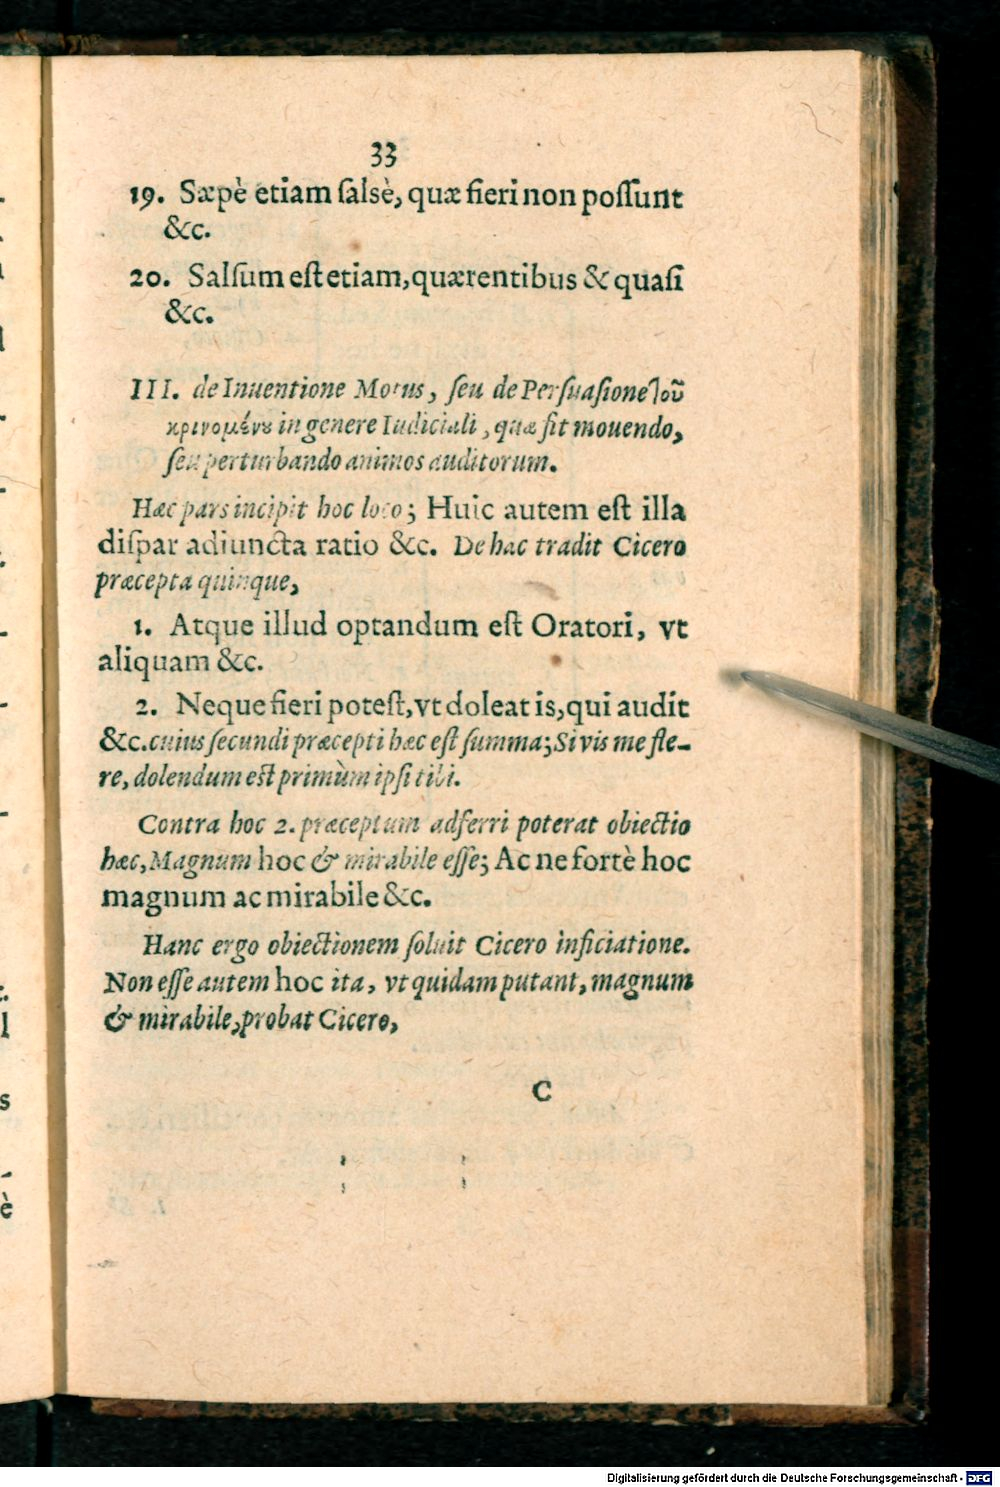 33
19. Sæpè etiam ſalsè, quæ fieri non poſſunt
&c.
20. Salſum eſt etiam, quærentibus & quaſi
&c.
III. de Inuentione Motus, ſeu de Perſuaſione τοῦ
κρινομένου in genere Iudiciali, quæ fit mouendo,
ſeu perturbando animos auditorum.
Hæc pars incipit hoc loco; Huic autem eſt illa
diſpar adiuncta ratio &c. De hac tradit Cicero
præcepta quinque,
1. Atque illud optandum eſt Oratori, vt
aliquam &c.
2. Neque fieri poteſt, vt doleat is, qui audit
&c. cuius ſecundi præcepti hæc eſt ſumma; Si vis me fle-
re, dolendum eſt primùm ipſi tibi.
Contra hoc 2. præceptum adferri poterat obiectio
hæc, Magnum hoc & mirabile eſſe; Ac ne fortè hoc
magnum ac mirabile &c.
Hanc ergo obiectionem ſoluit Cicero inficiatione.
Non eſſe autem hoc ita, vt quidam putant, magnum
& mirabile, probat Cicero,
C
Digitalisierung gefördert durch die Deutsche Forschungsgemeinschaft - DFG